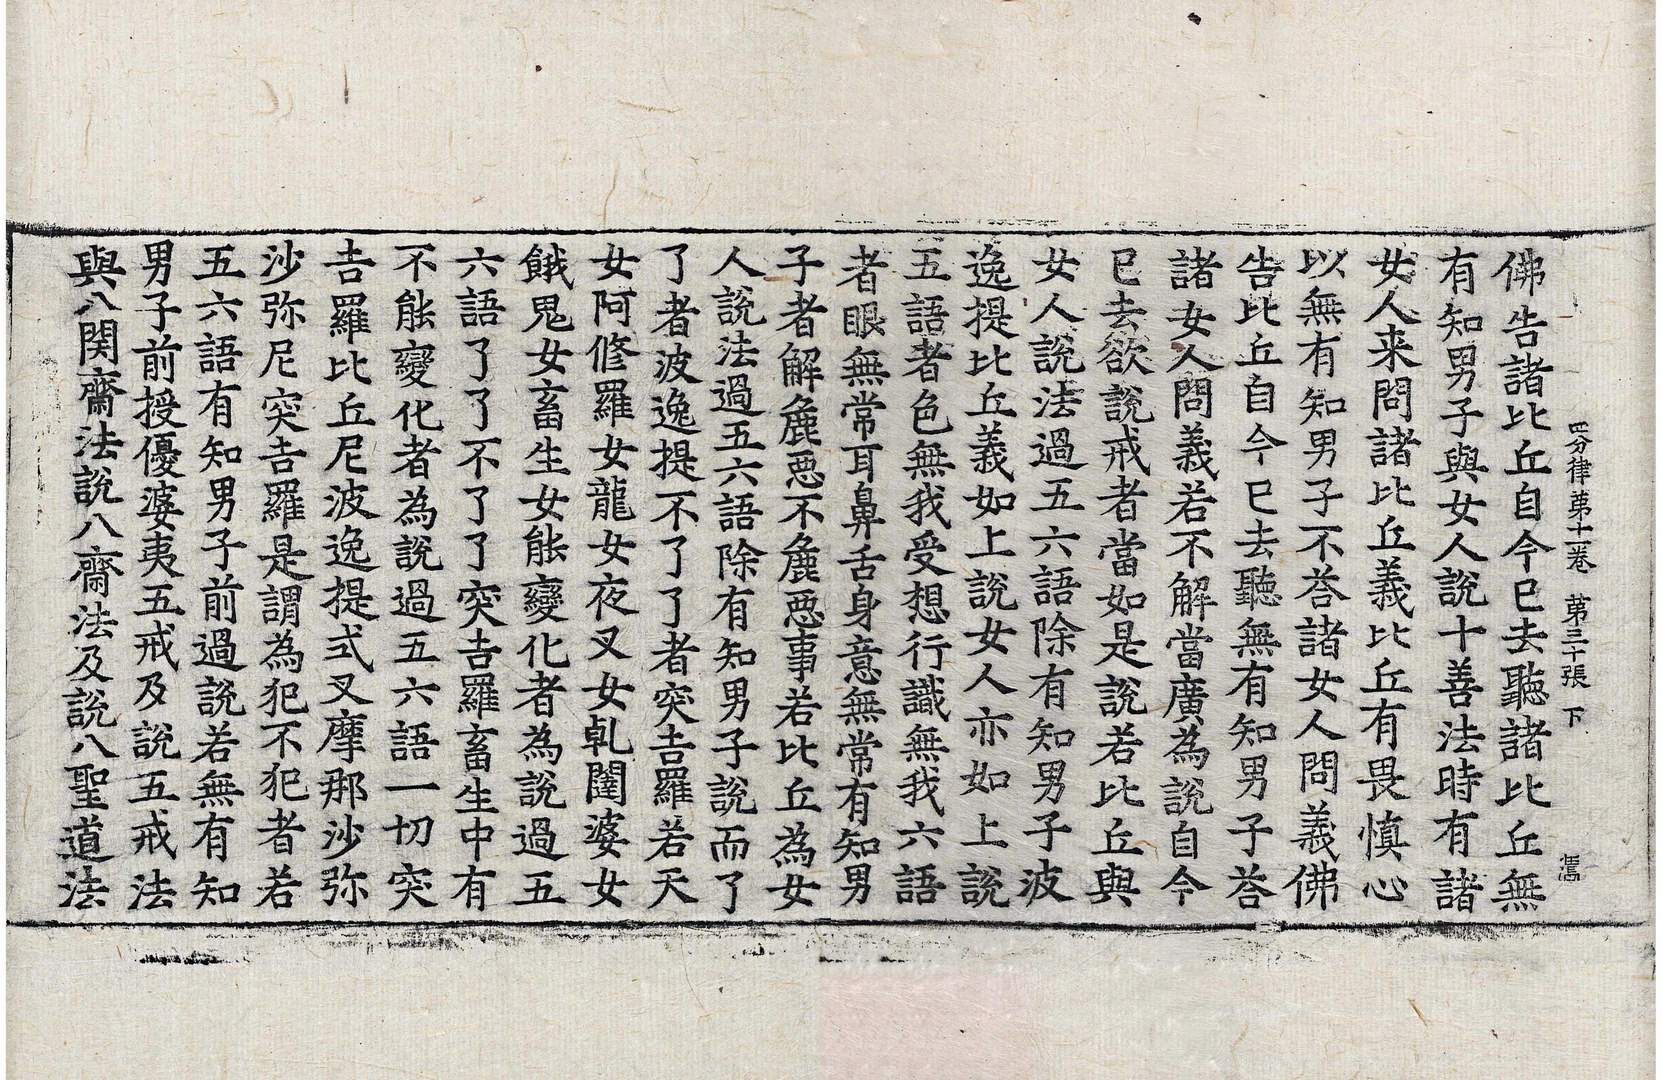 四分律第十一卷 第三十張 下
佛告諸比丘自今已去聽諸比丘無
有知男子與女人說十善法時有諸
女人来問諸比丘義比丘有畏慎心
以無有知男子不荅諸女人問義佛
告比丘自今已去聽無有知男子荅
諸女人問義若不解當廣為說自今
已去欲說戒者當如是說若比丘與
女人說法過五六語除有知男子波
逸提比丘義如上說女人亦如上說
五語者色無我受想行識無我六語
者眼無常耳鼻舌身意無常有知男
子者解麁惡不麁惡事若比丘為女
人說法過五六語除有知男子說而了
了者波逸提不了了者突吉羅若天
女阿修羅女龍女夜叉女乹闥婆女
餓鬼女畜生女能變化者為說過五
六語了了不了了突吉羅畜生中有
不能變化者為說過五六語一切突
吉羅比丘尼波逸提式叉摩那沙弥
沙弥尼突吉羅是謂為犯不犯者若
五六語有知男子前過說若無有知
男子前授優婆夷五戒及說五戒法
與八関齋法說八齋法及說八聖道法